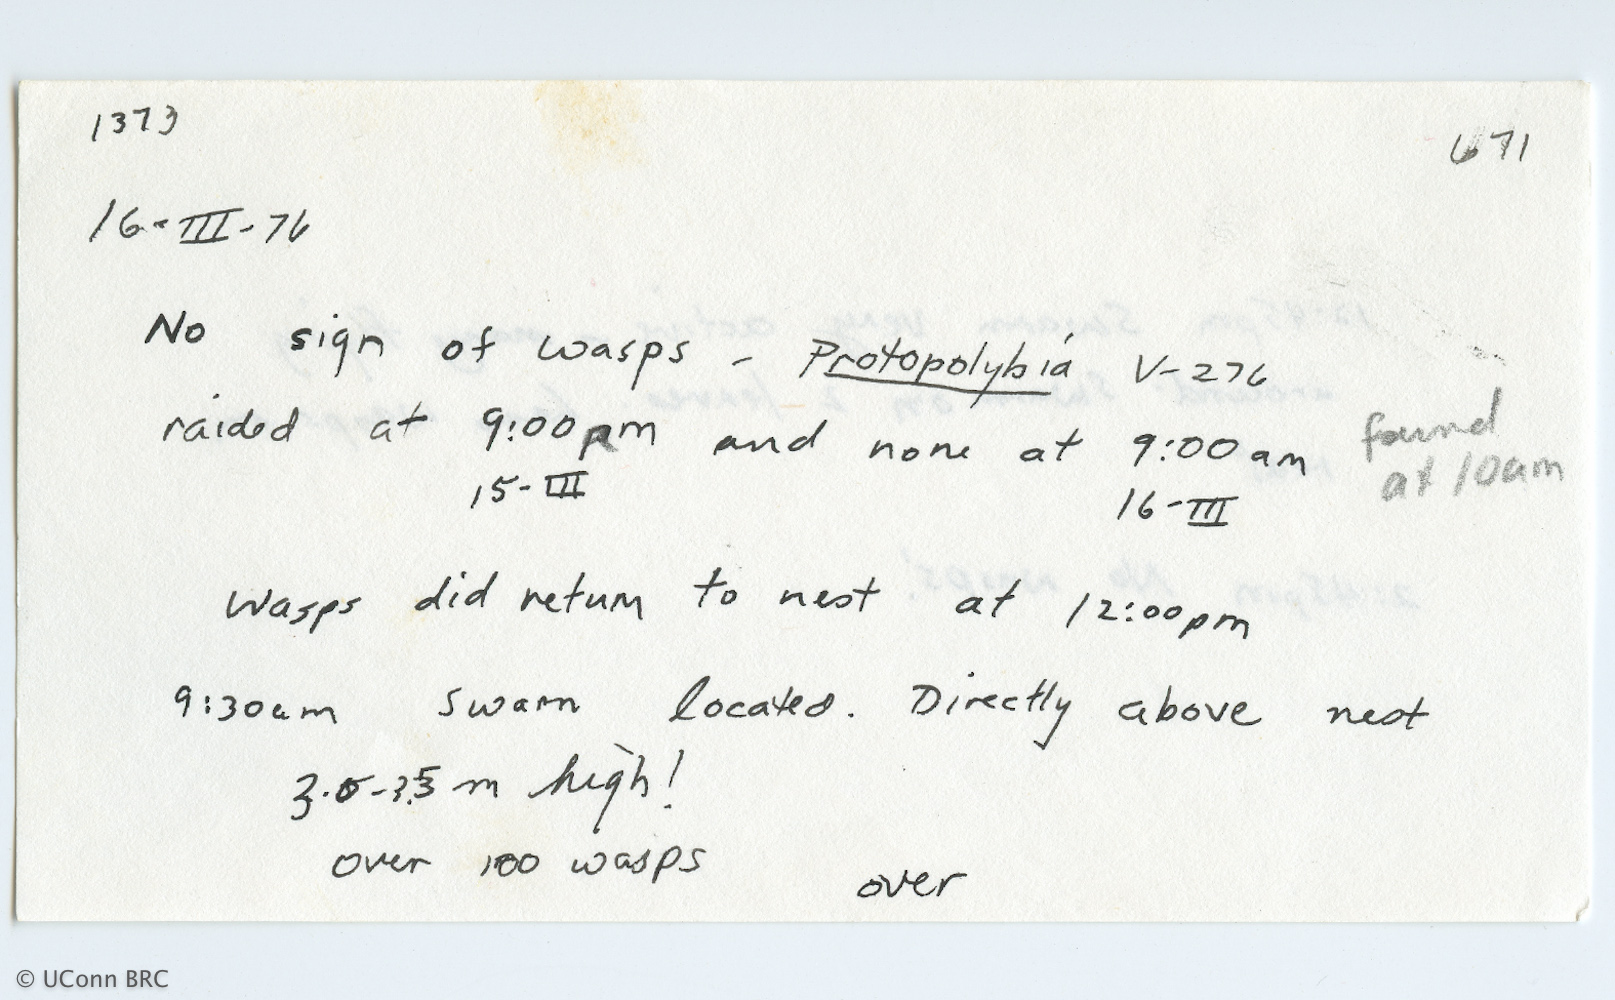 1373
671
16-III-76
No sign of wasps - Protopolybia V-276
raided at 9:00pm and none at 9:00am found
at 10am
15-III
16-III
Wasps did return to nest at 12:00pm
9:30am swarm located. Directly above nest
3.0-3.5 m high!
over 100 wasps
over
© UConn BRC